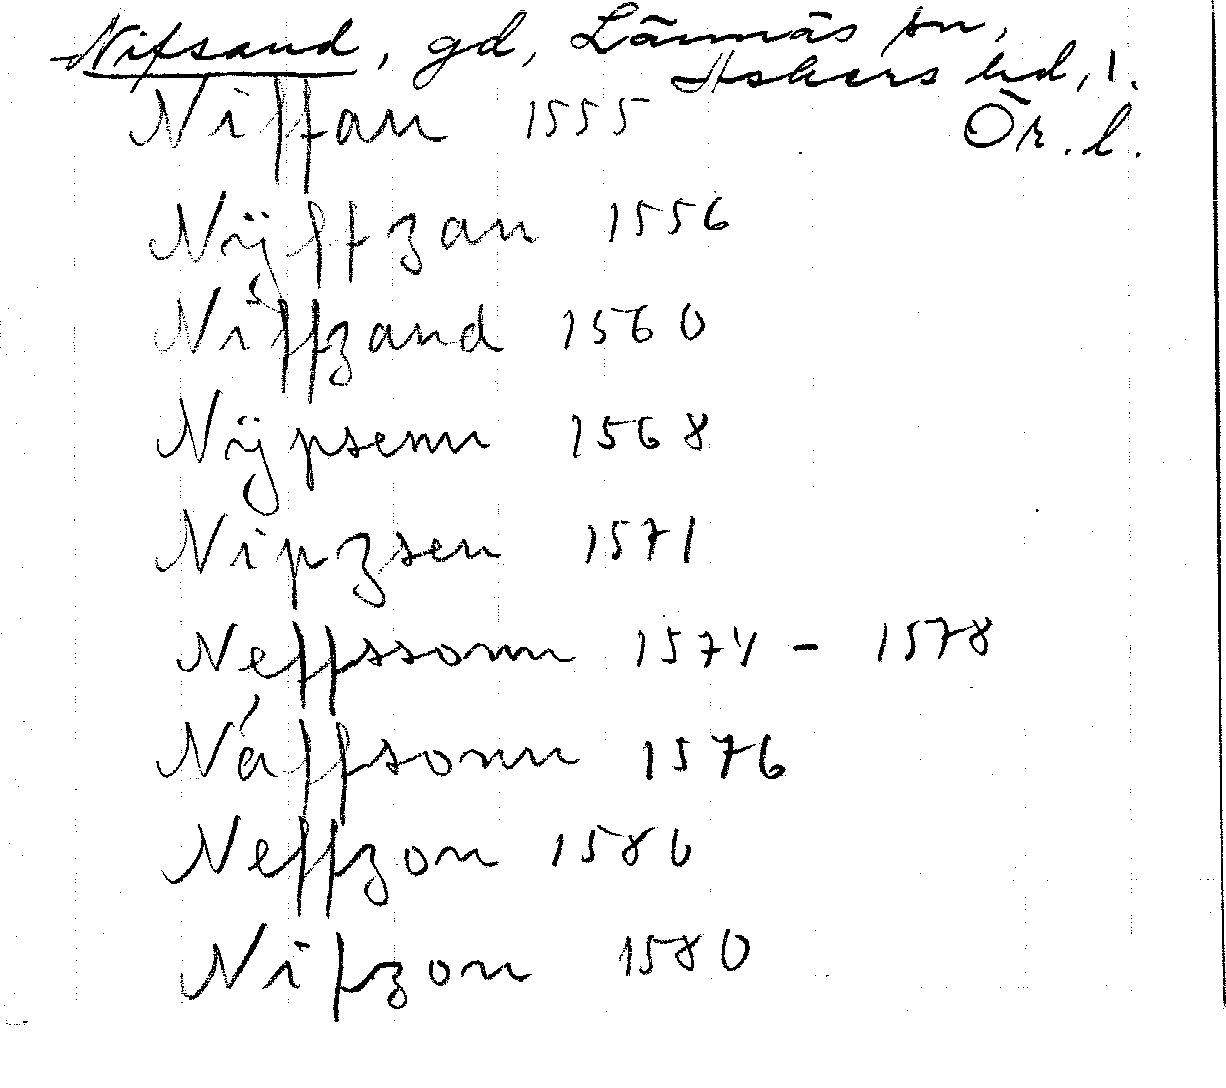 Nifsand, gd, Lännäs sn,
Askers hd,
Ör. l.
Niffan 1555
Nÿffzan 1556
Niffzand 1560
Nÿpsenn 1568
Nipzsen 1571
Neffssonn 1574 - 1578
Náffsonn 1576
Neffzon 1580
Nifzon 1580